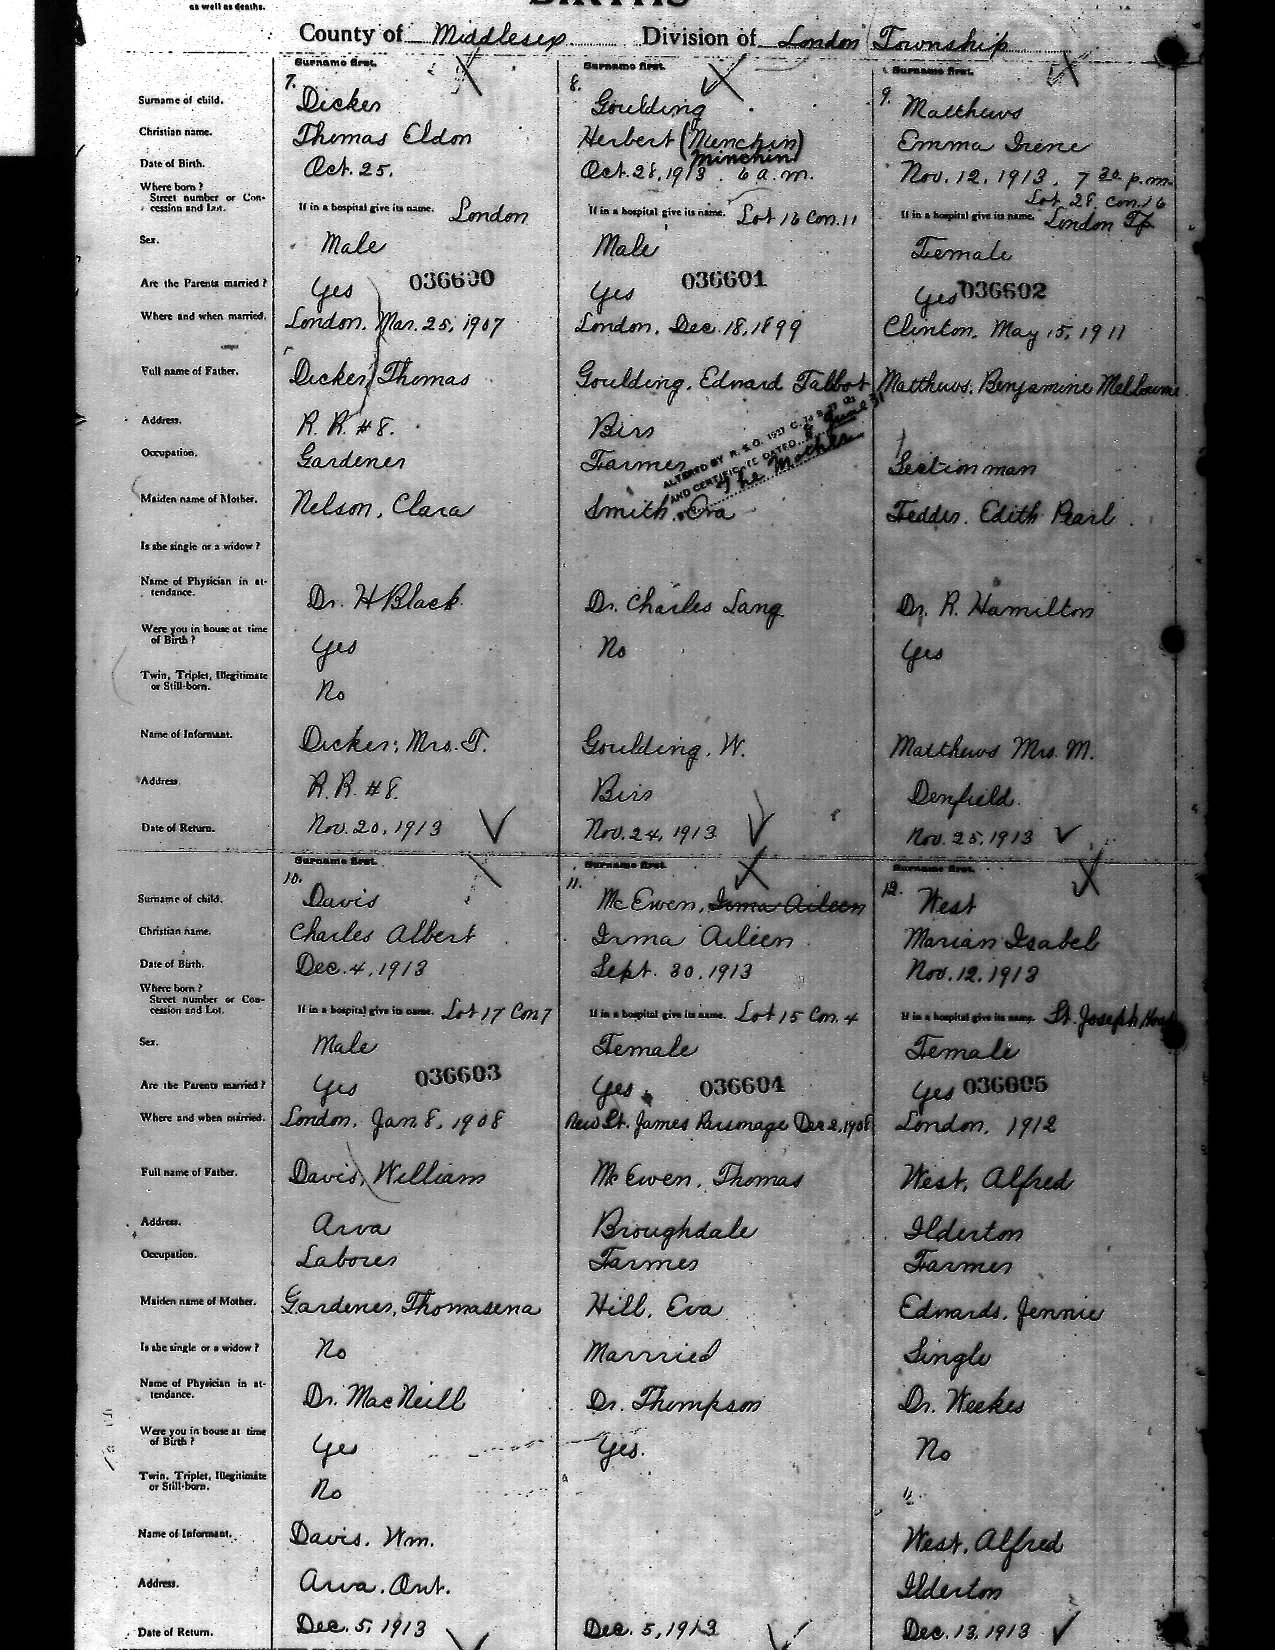 as well as deaths.
BIRTHS
County of Middlesex Division of London Township
Surname first. Surname first. Surname first.
7. 8. 9.
Surname of child. Dicker Goulding Matthews
Christian name. Thomas Eldon Herbert (Minchin) Emma Irene
Minchin
Date of Birth. Oct. 25. Oct. 28, 1913. 6 a.m. Nov. 12, 1913. 7 30 p.m.
Where born?
Street number or Con-
cession and Lot. If in a hospital give its name. London If in a hospital give its name. Lot 16 Con. 11 If in a hospital give its name. Lot 28 con. 16 London Tp
Sex. Male Male Female
036600 036601 036602
Are the Parents married? Yes Yes Yes
Where and when married. London, Mar. 25, 1907 London, Dec. 18, 1899 Clinton, May 15, 1911
Full name of Father. Dicker, Thomas Goulding, Edward Talbot Matthews, Benjamine Melbourne
Address. R. R. #8. Birr
ALTERED BY R. S. O. 1937 C.
AND CERTIFICATE DATED June
The Mother
Occupation. Gardener Farmer Section man
Maiden name of Mother. Nelson, Clara Smith, Ora Fedder, Edith Pearl.
Is she single or a widow?
Name of Physician in at-
tendance. Dr. H Black Dr. Charles Lang Dr. R. Hamilton
Were you in house at time
of Birth? Yes No Yes
Twin, Triplet, Illegitimate
or Still-born. No
Name of Informant. Dicker, Mrs. T. Goulding, W. Matthews Mrs. M.
Address. R. R. #8. Birr Denfield.
Date of Return. Nov. 20, 1913 Nov. 24, 1913 Nov. 25, 1913
Surname first. Surname first. Surname first.
10. 11. 12.
Surname of child. Davis McEwen, Irma Aileen West
Christian name. Charles Albert Irma Aileen Marian Isabel
Date of Birth. Dec. 4, 1913 Sept. 30, 1913 Nov. 12, 1913
Where born?
Street number or Con-
cession and Lot. If in a hospital give its name. Lot 17 Con 7 If in a hospital give its name. Lot 15 Con. 4 If in a hospital give its name. St. Joseph Hosp
Sex. Male Female Female
036603 036604 036605
Are the Parents married? Yes Yes Yes
Where and when married. London, Jan. 8, 1908 New St. James Parsonage Dec 2, 1908 London, 1912
Full name of Father. Davis, William McEwen, Thomas West, Alfred
Address. Arva Broughdale Ilderton
Occupation. Laborer Farmer Farmer
Maiden name of Mother. Gardener, Thomasena Hill, Eva Edwards, Jennie
Is she single or a widow? No Married Single
Name of Physician in at-
tendance. Dr. MacNeill Dr. Thompson Dr. Weekes
Were you in house at time
of Birth? Yes Yes. No
Twin, Triplet, Illegitimate
or Still-born. No "
Name of Informant. Davis, Wm. West, Alfred
Address. Arva, Ont. Ilderton
Date of Return. Dec. 5, 1913 Dec. 5, 1913 Dec. 13, 1913